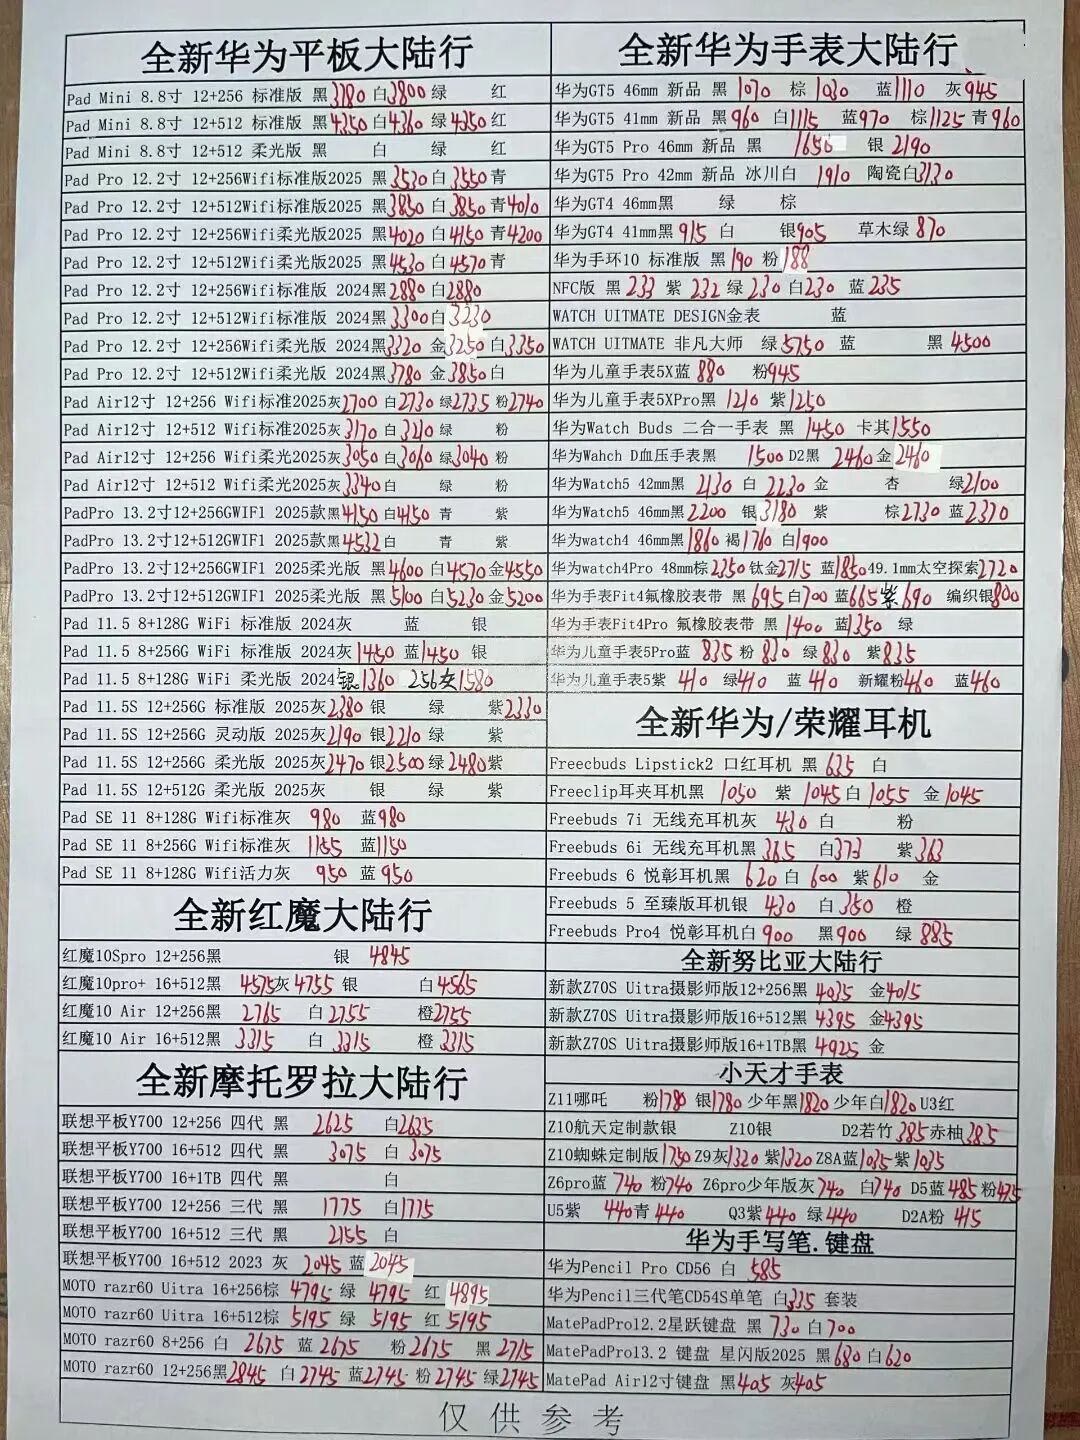 全新华为平板大陆行
Pad Mini 8.8寸 12+256 标准版 黑3780 白3800 绿 红
Pad Mini 8.8寸 12+512 标准版 黑4350 白4360 绿4350 红
Pad Mini 8.8寸 12+512 柔光版 黑 白 绿 红
Pad Pro 12.2寸 12+256Wifi标准版2025 黑3530 白3550 青
Pad Pro 12.2寸 12+512Wifi标准版2025 黑3850 白3850 青4010
Pad Pro 12.2寸 12+256Wifi柔光版2025 黑4020 白4150 青4200
Pad Pro 12.2寸 12+512Wifi柔光版2025 黑4530 白4570 青
Pad Pro 12.2寸 12+256Wifi标准版 2024黑2880 白2880
Pad Pro 12.2寸 12+512Wifi标准版 2024黑3300 白3230
Pad Pro 12.2寸 12+256Wifi柔光版 2024黑3320 金3250 白3350
Pad Pro 12.2寸 12+512Wifi柔光版 2024黑3780 金3850 白
Pad Air12寸 12+256 Wifi标准2025灰2700 白2730 绿2735 粉2740
Pad Air12寸 12+512 Wifi标准2025灰3170 白3210 绿 粉
Pad Air12寸 12+256 Wifi柔光2025灰3050 白3060 绿3040 粉
Pad Air12寸 12+512 Wifi柔光2025灰3340 白 绿 粉
PadPro 13.2寸12+256GWIF1 2025款黑4150 白4150 青 紫
PadPro 13.2寸12+512GWIF1 2025款黑4532 白 青 紫
PadPro 13.2寸12+256GWIF1 2025柔光版 黑4600 白4570 金4550
PadPro 13.2寸12+512GWIF1 2025柔光版 黑5100 白5230 金5200
Pad 11.5 8+128G WiFi 标准版 2024灰 蓝 银
Pad 11.5 8+256G WiFi 标准版 2024灰1450 蓝1450 银
Pad 11.5 8+128G WiFi 柔光版 2024银1360 256灰1580
Pad 11.5S 12+256G 标准版 2025灰2380 银 绿 紫2330
Pad 11.5S 12+256G 灵动版 2025灰2190 银2210 绿 紫
Pad 11.5S 12+256G 柔光版 2025灰2470 银2500 绿2480 紫
Pad 11.5S 12+512G 柔光版 2025灰 银 绿 紫
Pad SE 11 8+128G Wifi标准灰 980 蓝980
Pad SE 11 8+256G Wifi标准灰 1155 蓝1150
Pad SE 11 8+128G Wifi活力灰 950 蓝 950
全新红魔大陆行
红魔10Spro 12+256黑 银 4845
红魔10pro+ 16+512黑 4575 灰4755 银 白4565
红魔10 Air 12+256黑 2765 白2755 橙2755
红魔10 Air 16+512黑 3315 白 3315 橙3315
全新摩托罗拉大陆行
联想平板Y700 12+256 四代 黑 2625 白2635
联想平板Y700 16+512 四代 黑 3075 白 3075
联想平板Y700 16+1TB 四代 黑 白
联想平板Y700 12+256 三代 黑 1775 白1775
联想平板Y700 16+512 三代 黑 2155 白
联想平板Y700 16+512 2023 灰 2045 蓝2045
MOTO razr60 Uitra 16+256棕 4795 绿 4795 红 4895
MOTO razr60 Uitra 16+512棕 5195 绿 5195 红 5195
MOTO razr60 8+256 白 2675 蓝 2675 粉 2675 黑 2715
MOTO razr60 12+256黑2845 白2745 蓝2745 粉2745 绿2745
全新华为手表大陆行
华为GT5 46mm 新品 黑 1070 棕 1030 蓝1110 灰945
华为GT5 41mm 新品 黑960 白1115 蓝970 棕1125 青960
华为GT5 Pro 46mm 新品 黑 1650 银 2190
华为GT5 Pro 42mm 新品 冰川白 1910 陶瓷白3130
华为GT4 46mm黑 绿 棕
华为GT4 41mm黑915 白 银905 草木绿 870
华为手环10 标准版 黑190 粉188
NFC版 黑 233 紫 232 绿230 白230 蓝 235
WATCH UITMATE DESIGN金表 蓝
WATCH UITMATE 非凡大师 绿5750 蓝 黑 4500
华为儿童手表5X蓝 880 粉945
华为儿童手表5XPro黑 1210 紫1250
华为Watch Buds 二合一手表 黑 1450 卡其1550
华为Wahch D血压手表黑 1500 D2黑 2460 金2460
华为Watch5 42mm黑 2130 白 2230 金 杏 绿2100
华为Watch5 46mm黑2200 银3180 紫 棕2730 蓝2370
华为watch4 46mm黑1860 褐1760 白1900
华为watch4Pro 48mm棕2350 钛金2715 蓝1850 49.1mm太空探索2720
华为手表Fit4氟橡胶表带 黑 695 白700 蓝665 紫690 编织银800
华为手表Fit4Pro 氟橡胶表带 黑 1400 蓝1350 绿
华为儿童手表5Pro蓝 835 粉 830 绿 830 紫835
华为儿童手表5紫 410 绿410 蓝 410 新耀粉460 蓝460
全新华为/荣耀耳机
Freecbuds Lipstick2 口红耳机 黑 635 白
Freeclip耳夹耳机黑 1050 紫 1045 白1055 金1045
Freebuds 7i 无线充耳机灰 430 白 粉
Freebuds 6i 无线充耳机黑 365 白373 紫363
Freebuds 6 悦彰耳机黑 620 白 600 紫610 金
Freebuds 5 至臻版耳机银 430 白350 橙
Freebuds Pro4 悦彰耳机白 900 黑900 绿 885
全新努比亚大陆行
新款Z70S Uitra摄影师版12+256黑 4035 金4015
新款Z70S Uitra摄影师版16+512黑 4395 金4395
新款Z70S Uitra摄影师版16+1TB黑 4925 金
小天才手表
Z11哪吒 粉1780 银1780 少年黑1820 少年白1820 U3红
Z10航天定制款银 Z10银 D2若竹 385 赤柚385
Z10蜘蛛定制版1750 Z9灰1320 紫1320 Z8A蓝1035 紫1035
Z6pro蓝 740 粉740 Z6pro少年版灰740 白740 D5蓝485 粉475
U5紫 440 青440 Q3紫440 绿440 D2A粉 415
华为手写笔.键盘
华为Pencil Pro CD56 白 585
华为Pencil三代笔CD54S单笔 白335 套装
MatePadPro12.2星跃键盘 黑 730 白700
MatePadPro13.2 键盘 星闪版2025 黑680 白620
MatePad Air12寸键盘 黑405 灰405
仅供参考